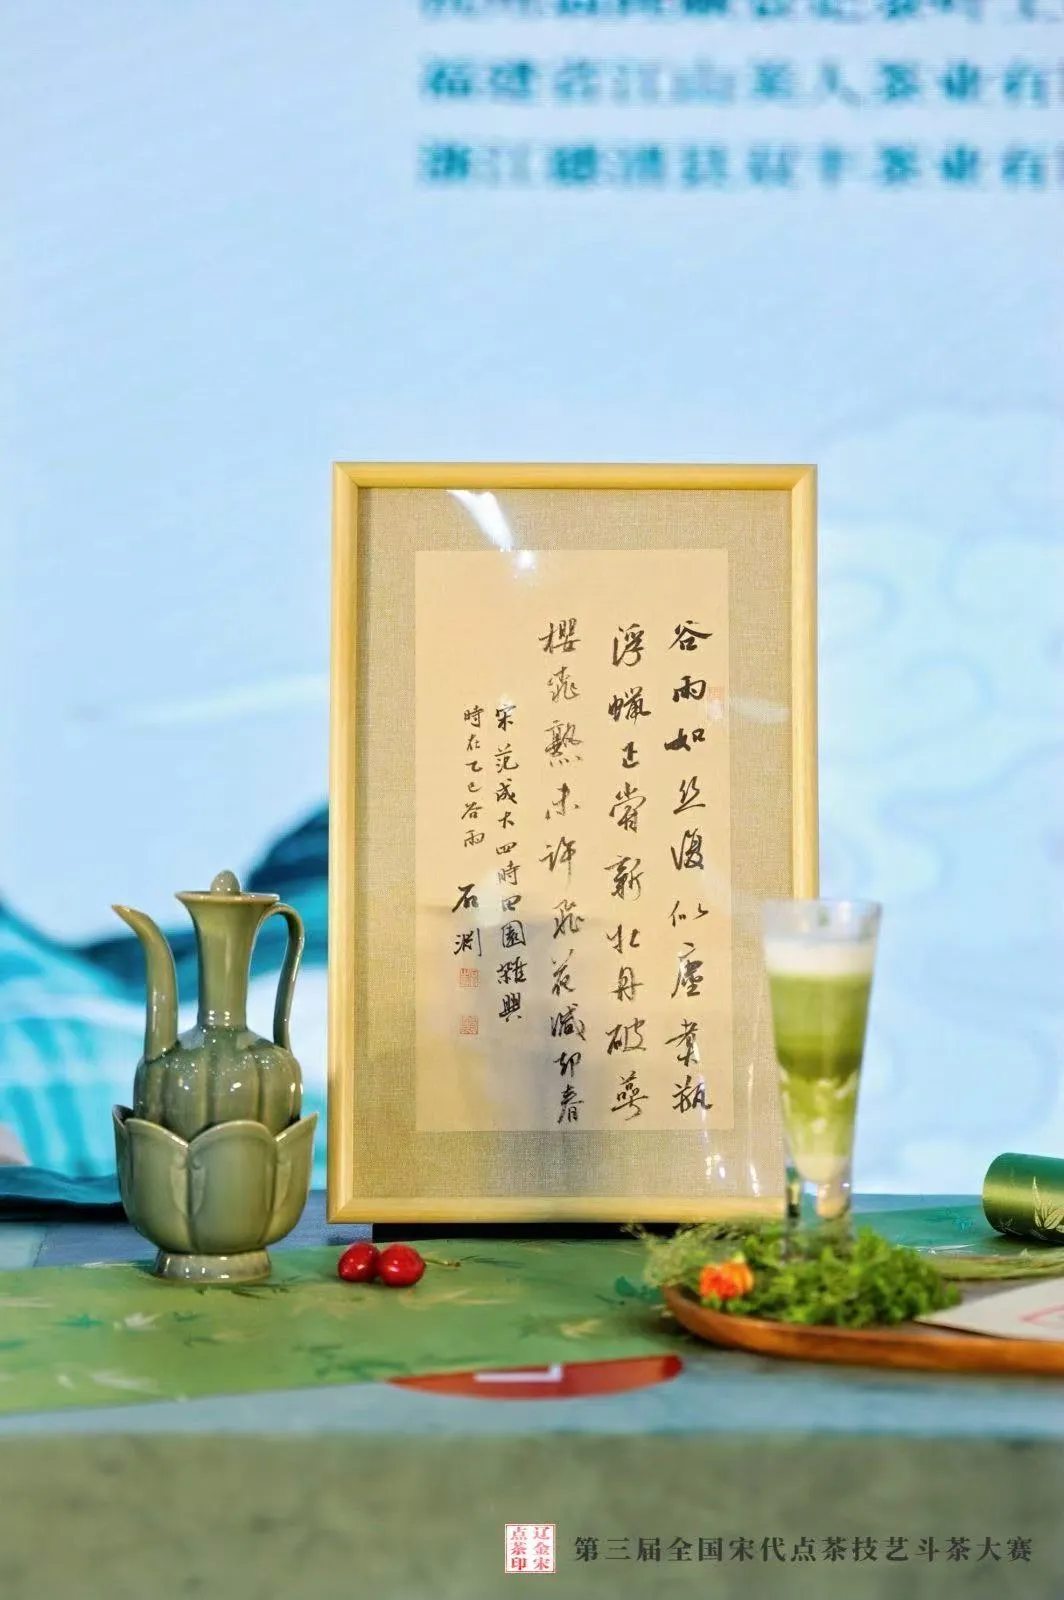 福建省江山美人茶业有
浙江
茶业有
谷雨如丝復似塵煮瓶
浮蠟正嘗新牡丹破萼
櫻桃熟未許飛花減却春
宋范成大四時田園雜興
時在乙巳谷雨 石淵
辽金宋
点茶印
第三届全国宋代点茶技艺斗茶大赛